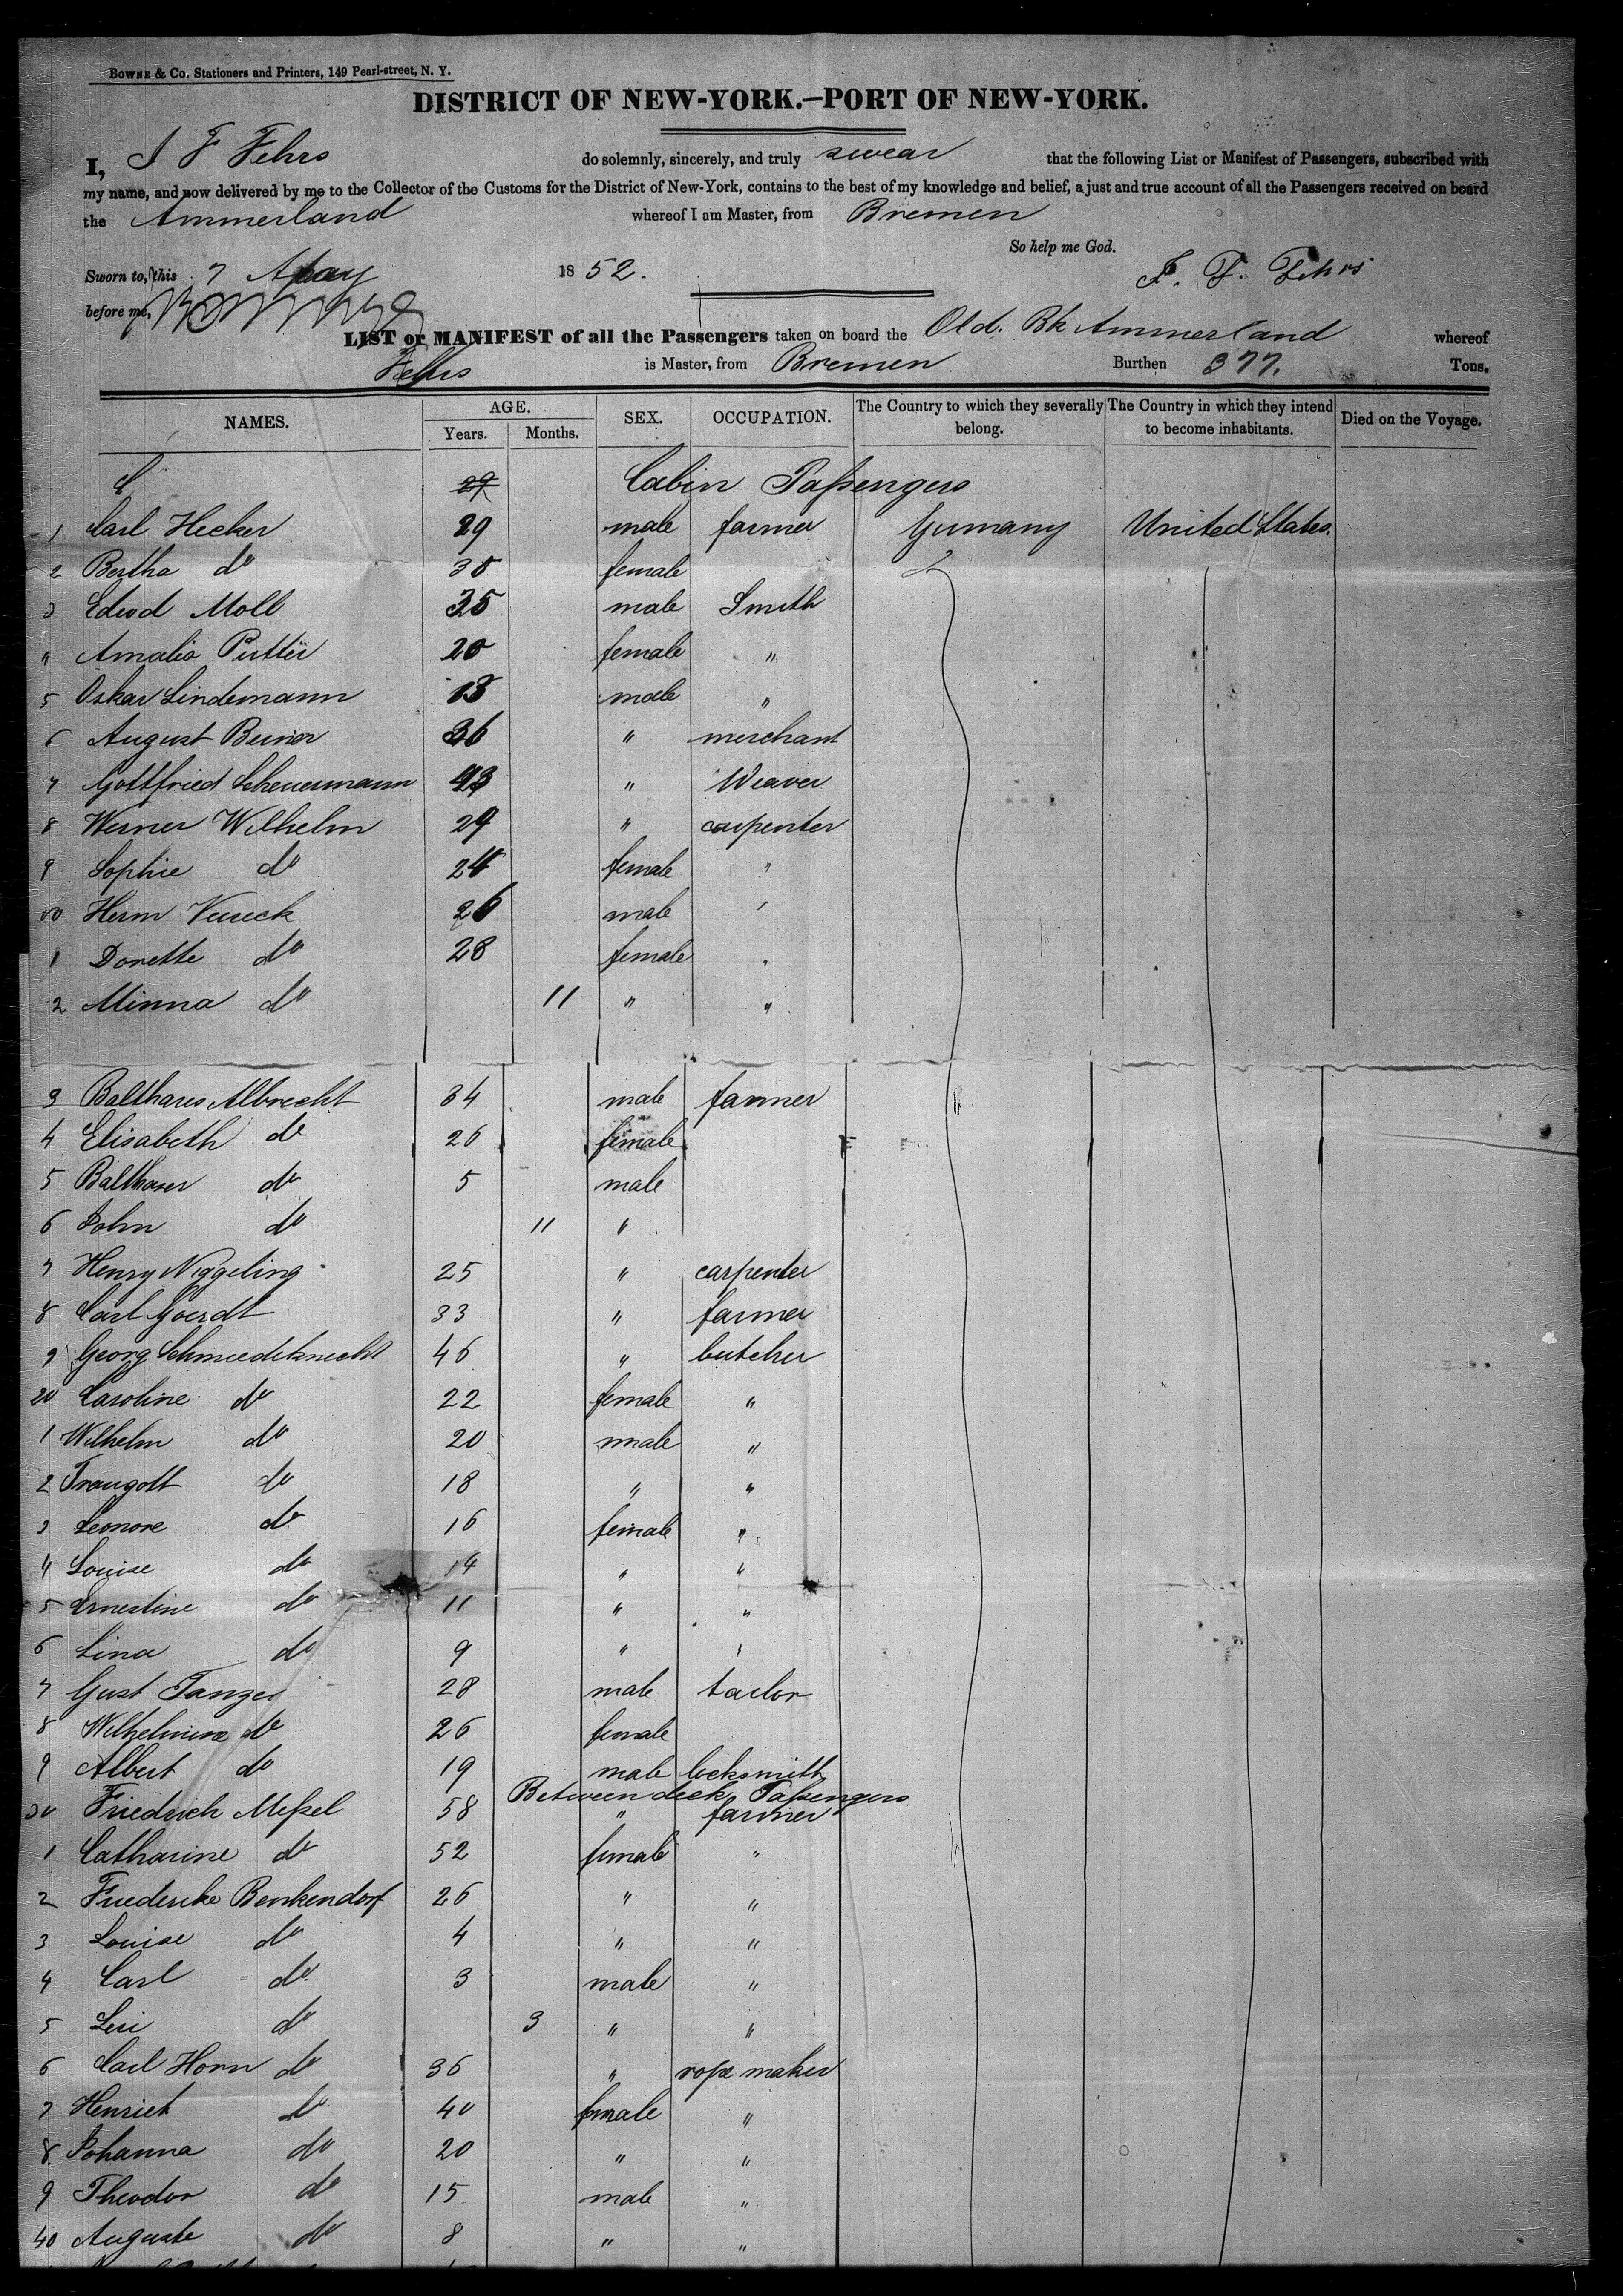 BOWNE & Co. Stationers and Printers, 149 Pearl-street, N. Y.
DISTRICT OF NEW-YORK.—PORT OF NEW-YORK.
I, J F Fehrs do solemnly, sincerely, and truly swear that the following List or Manifest of Passengers, subscribed with
my name, and now delivered by me to the Collector of the Customs for the District of New-York, contains to the best of my knowledge and belief, a just and true account of all the Passengers received on board
the Ammerland whereof I am Master, from Bremen
So help me God.
Sworn to, this 7 May 1852. J. F. Fehrs
before me,
LIST or MANIFEST of all the Passengers taken on board the Old. Bk Ammerland whereof
Fehrs is Master, from Bremen Burthen 377. Tons.
NAMES. AGE. Years. Months. SEX. OCCUPATION. The Country to which they severally belong. The Country in which they intend to become inhabitants. Died on the Voyage.
C 29 Cabin Passengers
1 Carl Hecker 29 male farmer Germany United States.
2 Bertha do 30 female
3 Edwd Moll 35 male Smith
4 Amalia Putter 20 female "
5 Oskar Lindemann 18 male "
6 August 36 " merchant
7 Gottfried Scheuermann 43 " Weaver
8 Werner Wilhelm 29 " carpenter
9 Sophie do 24 female "
10 Herm 26 male "
1 Dorette do 28 female "
2 Minna do 11 " "
3 Balthares Albrecht 34 male farmer
4 Elisabeth do 26 female
5 Balthaser do 5 male
6 John do 11 "
7 Henry Niggeling 25 " carpenter
8 Carl Goerdt 33 " farmer
9 Georg Schmiedeknecht 46 " butcher
20 Caroline do 22 female "
1 Wilhelm do 20 male "
2 Traugott do 18 " "
3 Leonore do 16 female "
4 Louise do 14 " "
5 Ernestine do 11 " "
6 Lina do 9 " "
7 Gust Tanzer 28 male tailor
8 Wilhelmine do 26 female
9 Albert do 19 male locksmith
Between deck Passengers
30 Friedrich Messel 58 " farmer
1 Catharine do 52 female "
2 Friedericke Benkendorf 26 " "
3 Louise do 4 " "
4 Carl do 3 male "
5 do 3 " "
6 Carl Horn do 36 " rope maker
7 Henriet do 40 female "
8 Johanna do 20 " "
9 Theodor do 15 male "
40 Auguste do 8 " "